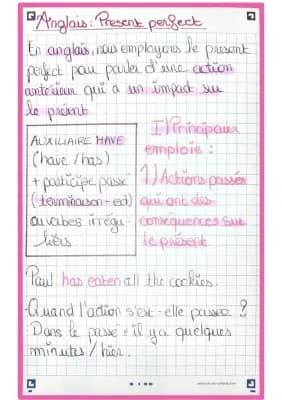 Anglais : Present perfect
En anglais, nous employons le present
perfect pour parler d'une action
antérieure qui a un impact sur
le présent.
AUXILIAIRE HAVE
(have / has)
+ participe passé
(terminaison -ed)
ou verbes irrégu-
liers
I) Principaux
emplois :
1) Actions passés
qui ont des
conséquences sur
le présent
Paul has eaten all the cookies.
-Quand l'action s'est-elle passée ?
-Dans le passé → il y a quelques
minutes / hier.